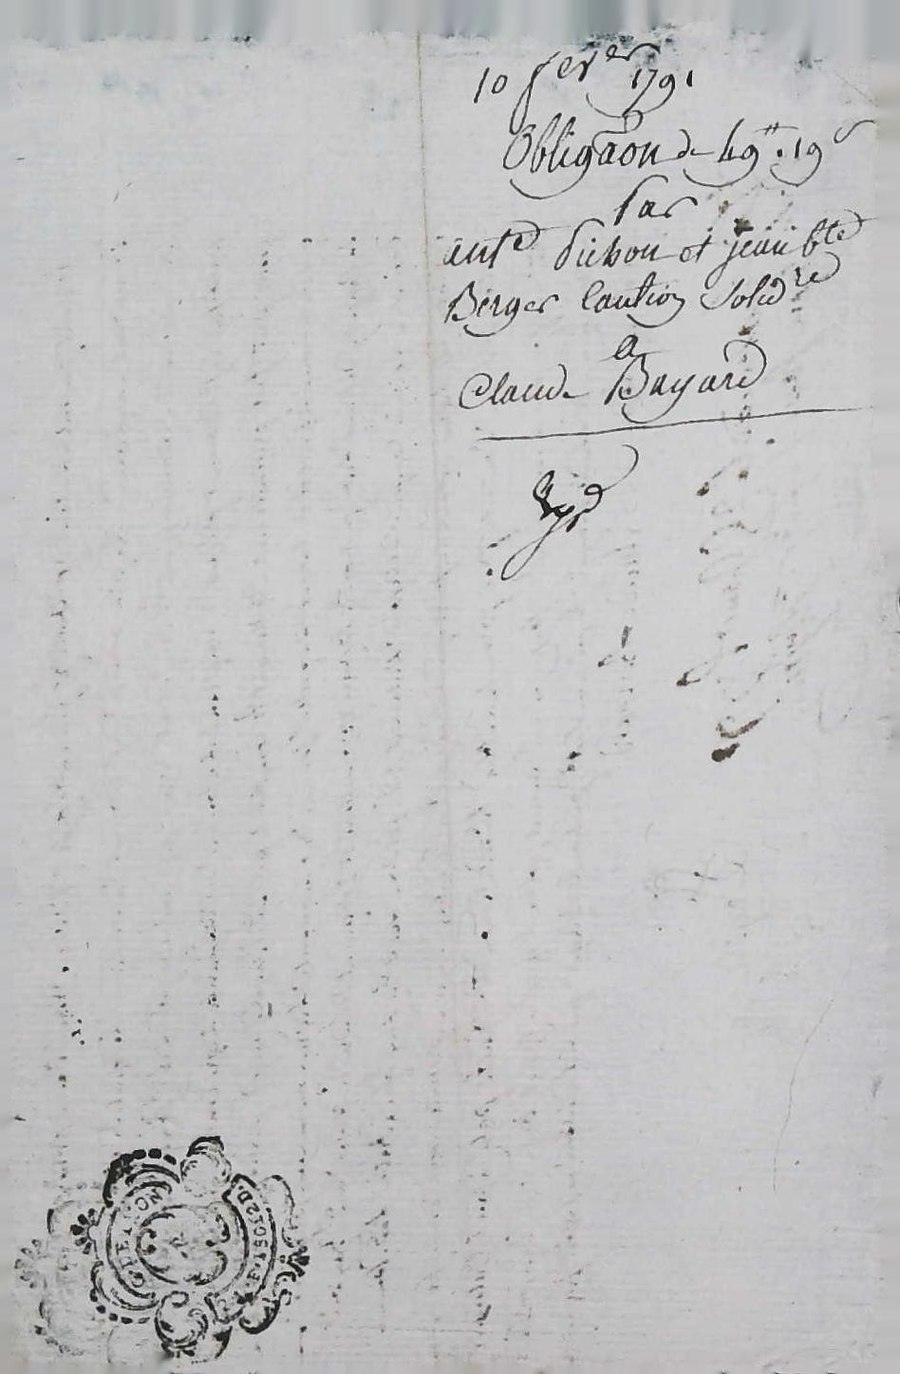 10 fever 1791
Obligaon de 49# . 19s
Par
ante Pichon et jean bte
Berger Caution Solidre
a
Claude Bayard